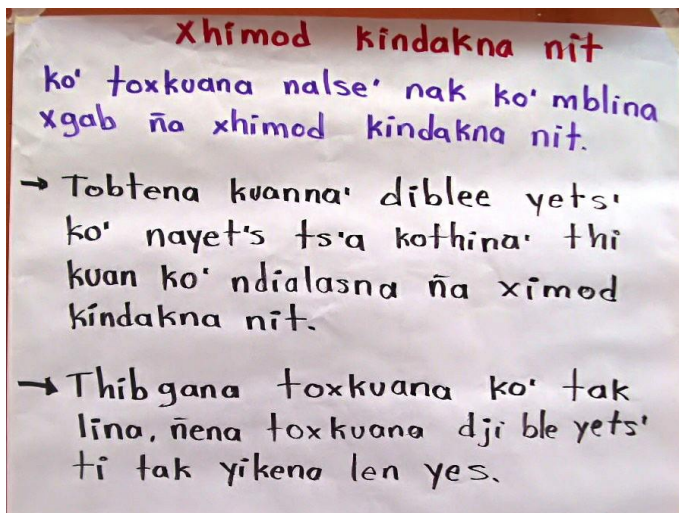 xhimod kindakna nit
ko' toxkuana nalse' nak ko' mblina
xgab ña xhimod kindakna nit.
→ Tobtena kuanna' diblee yets'
ko' nayet's ts'a kothina' thi
kuan ko' ndialasna ña ximod
kindakna nit.
→ Thib gana toxkuana ko' tak
lina, ñena toxkuana dji ble yets'
ti tak yikena len yes.